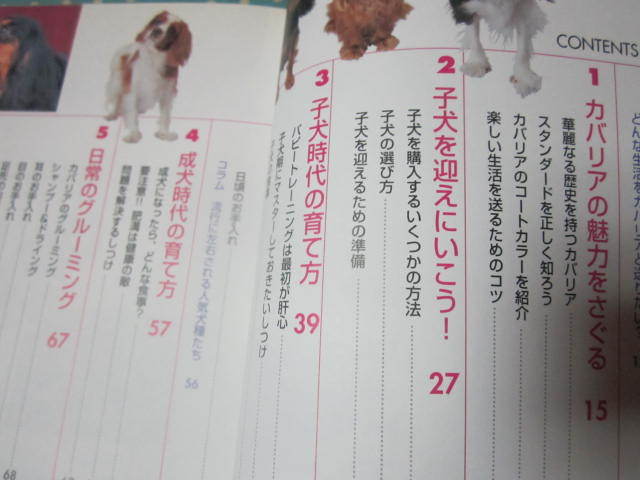 CONTENTS
1 カバリアの魅力をさぐる 15
華麗なる歴史を持つカバリア
スタンダードを正しく知ろう
カバリアのコートカラーを紹介
楽しい生活を送るためのコツ
2 子犬を迎えにいこう! 27
子犬を購入するいくつかの方法
子犬の選び方
子犬を迎えるための準備
3 子犬時代の育て方 39
パピートレーニングは最初が肝心
子犬期にマスターしておきたいしつけ
日頃のお手入れ
コラム 流行に左右される人気犬種たち 56
4 成犬時代の育て方 57
成犬になったら、どんな食事?
要注意!! 肥満は健康の敵
問題を解決するしつけ
5 日常のグルーミング 67
カバリアのグルーミング
シャンプー&ドライイング
耳のお手入れ
目のお手入れ
68